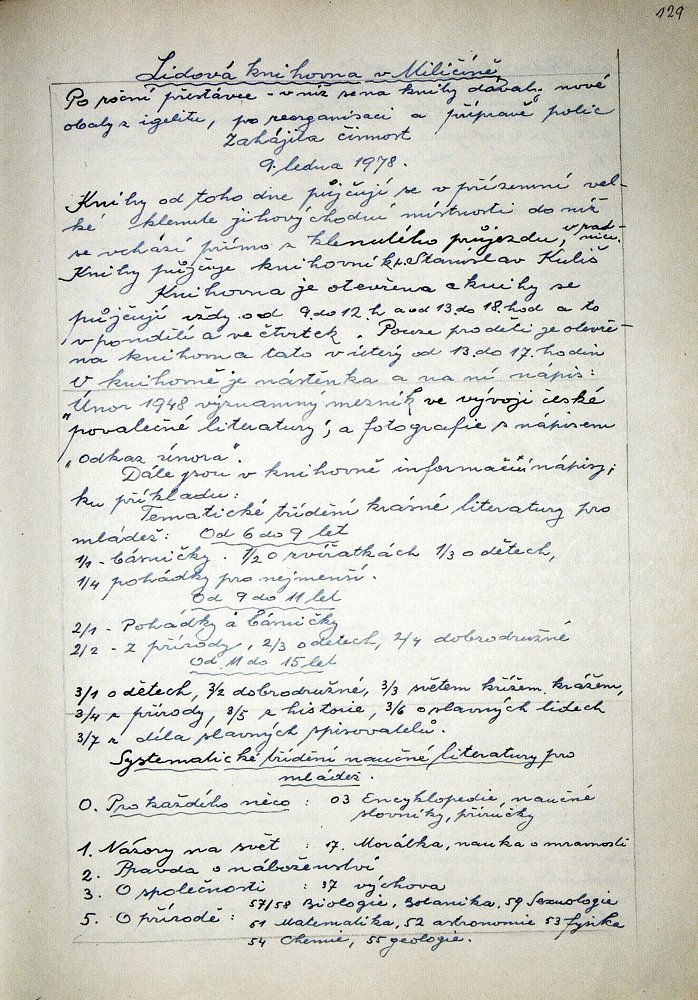 129
Lidová knihovna v Miličíně,
Po roční přestávce - v níž se na knihy dávaly nové
obaly z igelitu, po reorganisaci a přípravě polic
Zahájila činnost
9. ledna 1978.
Knihy od toho dne půjčují se v přízemní vel-
ké klenuté jihovýchodní místnosti do níž
se vchází přímo z klenutého průjezdu, v rad-
nici.
Knihy půjčuje knihovník Stanislav Kuliš
Knihovna je otevřena a knihy se
půjčují vždy od 9. do 12. h a od 13 do 18. hod a to
v pondělí a ve čtvrtek. Pouze pro děti je otevře-
na knihovna tato v úterý od 13. do 17. hodin
V knihovně je nástěnka a na ní nápis:
Únor 1948 významný mezník ve vývoji české
"poválečné literatury", a fotografie s nápisem
"Odkaz února".
Dále jsou v knihovně informační nápisy,
ku příkladu:
Tematické třídění krásné literatury pro
mládež: Od 6 do 9 let
1/1 - básničky. 1/2 o zvířatkách 1/3 o dětech,
1/4 pohádky pro nejmenší.
Od 9 do 11 let
2/1 - Pohádky a básničky
2/2 - Z přírody, 2/3 o dětech, 2/4 dobrodružné
Od 11 do 15 let
3/1 o dětech, 3/2 dobrodružné, 3/3 světem křížem krážem,
3/4 z přírody, 3/5 z historie, 3/6 o slavných lidech
3/7 z díla slavných spisovatelů.
Systematické třídění naučné literatury pro
mládež.
0. Pro každého něco : 03 Encyklopedie, naučné
slovníky, příručky
1. Názory na svět : 17. Morálka, nauka o mravnosti
2. Pravda o náboženství
3. O společnosti : 37 výchova
57/58 Biologie, Botanika, 59 Sexuologie
5. O přírodě : 51 Matematika, 52 astronomie 53 fysika
54 Chemie, 55 geologie.